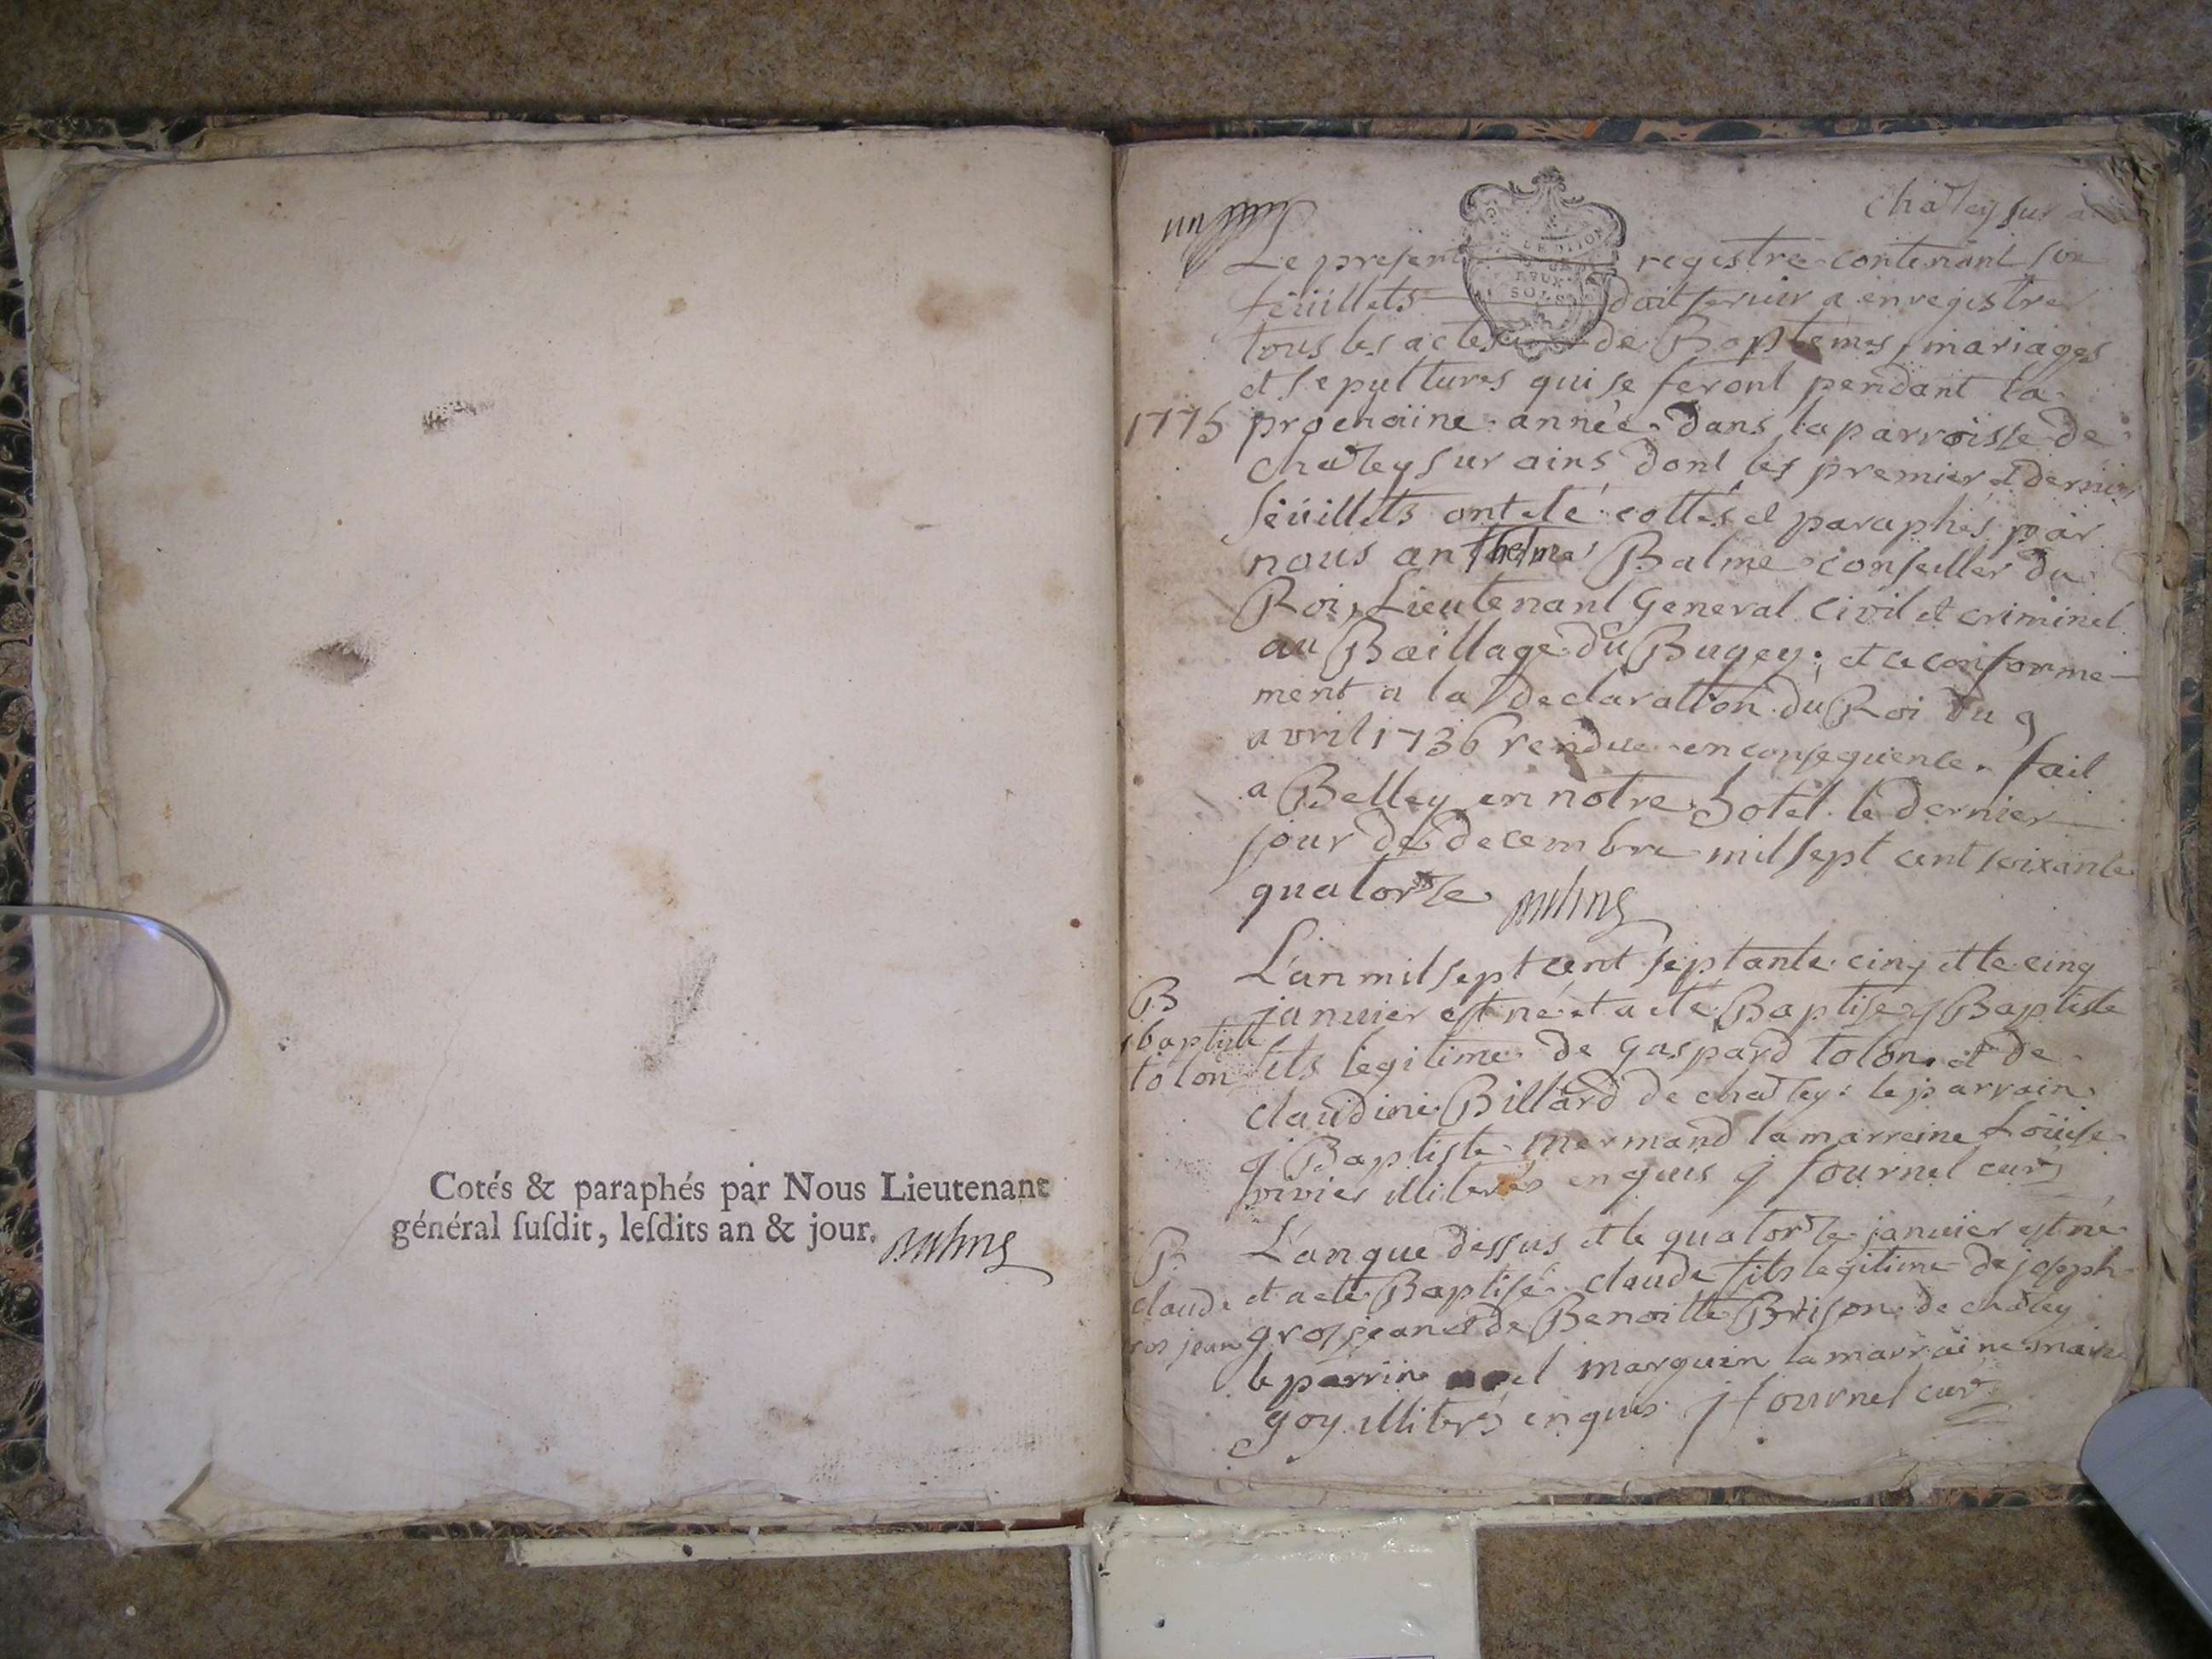 Cotés & paraphés par Nous Lieutenant
général ſuſdit, leſdits an & jour.
chatey sur
Le present registre contenant six
feuillets doit servir a enregistrer
tous les actes de Baptemes, mariages
et sepultures qui se feront pendant la
1775 prochaine année dans la parroisse de
chatey sur ains dont les premier et dernier
feuillets ont eté cottés et paraphés par
nous anthelme Balme conseiller du
Roi, Lieutenant General Civil et criminel
au Baillage du Bugey; et ce conforme-
ment a la declaration du Roi du 9
avril 1736 rendue en consequence. fait
a Belley en notre hotel le dernier
jour de decembre mil sept cent soixante
quatorze
L'an mil sept cent septante cinq et le cinq
B janvier est né et a eté Baptisé j Baptiste
j baptiste
tolon fils legitime de gaspard tolon et de
claudine Billard de chatey: le parrain
j Baptiste mermand la marreine Loüise
vivier illiterés enquis j fournel curé
B L'an que dessus et le quatorze janvier est né
claude et a eté Baptisé claude fils legitime de joseph
gros jean grosjean et de Benoitte Brison de chatey
le parrin marguin la marraine marie
goy illiterés enquis j fournel curé